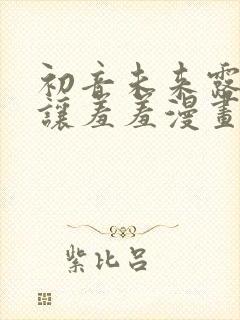 初音未来露
讓羞羞漫畫
紫比呂